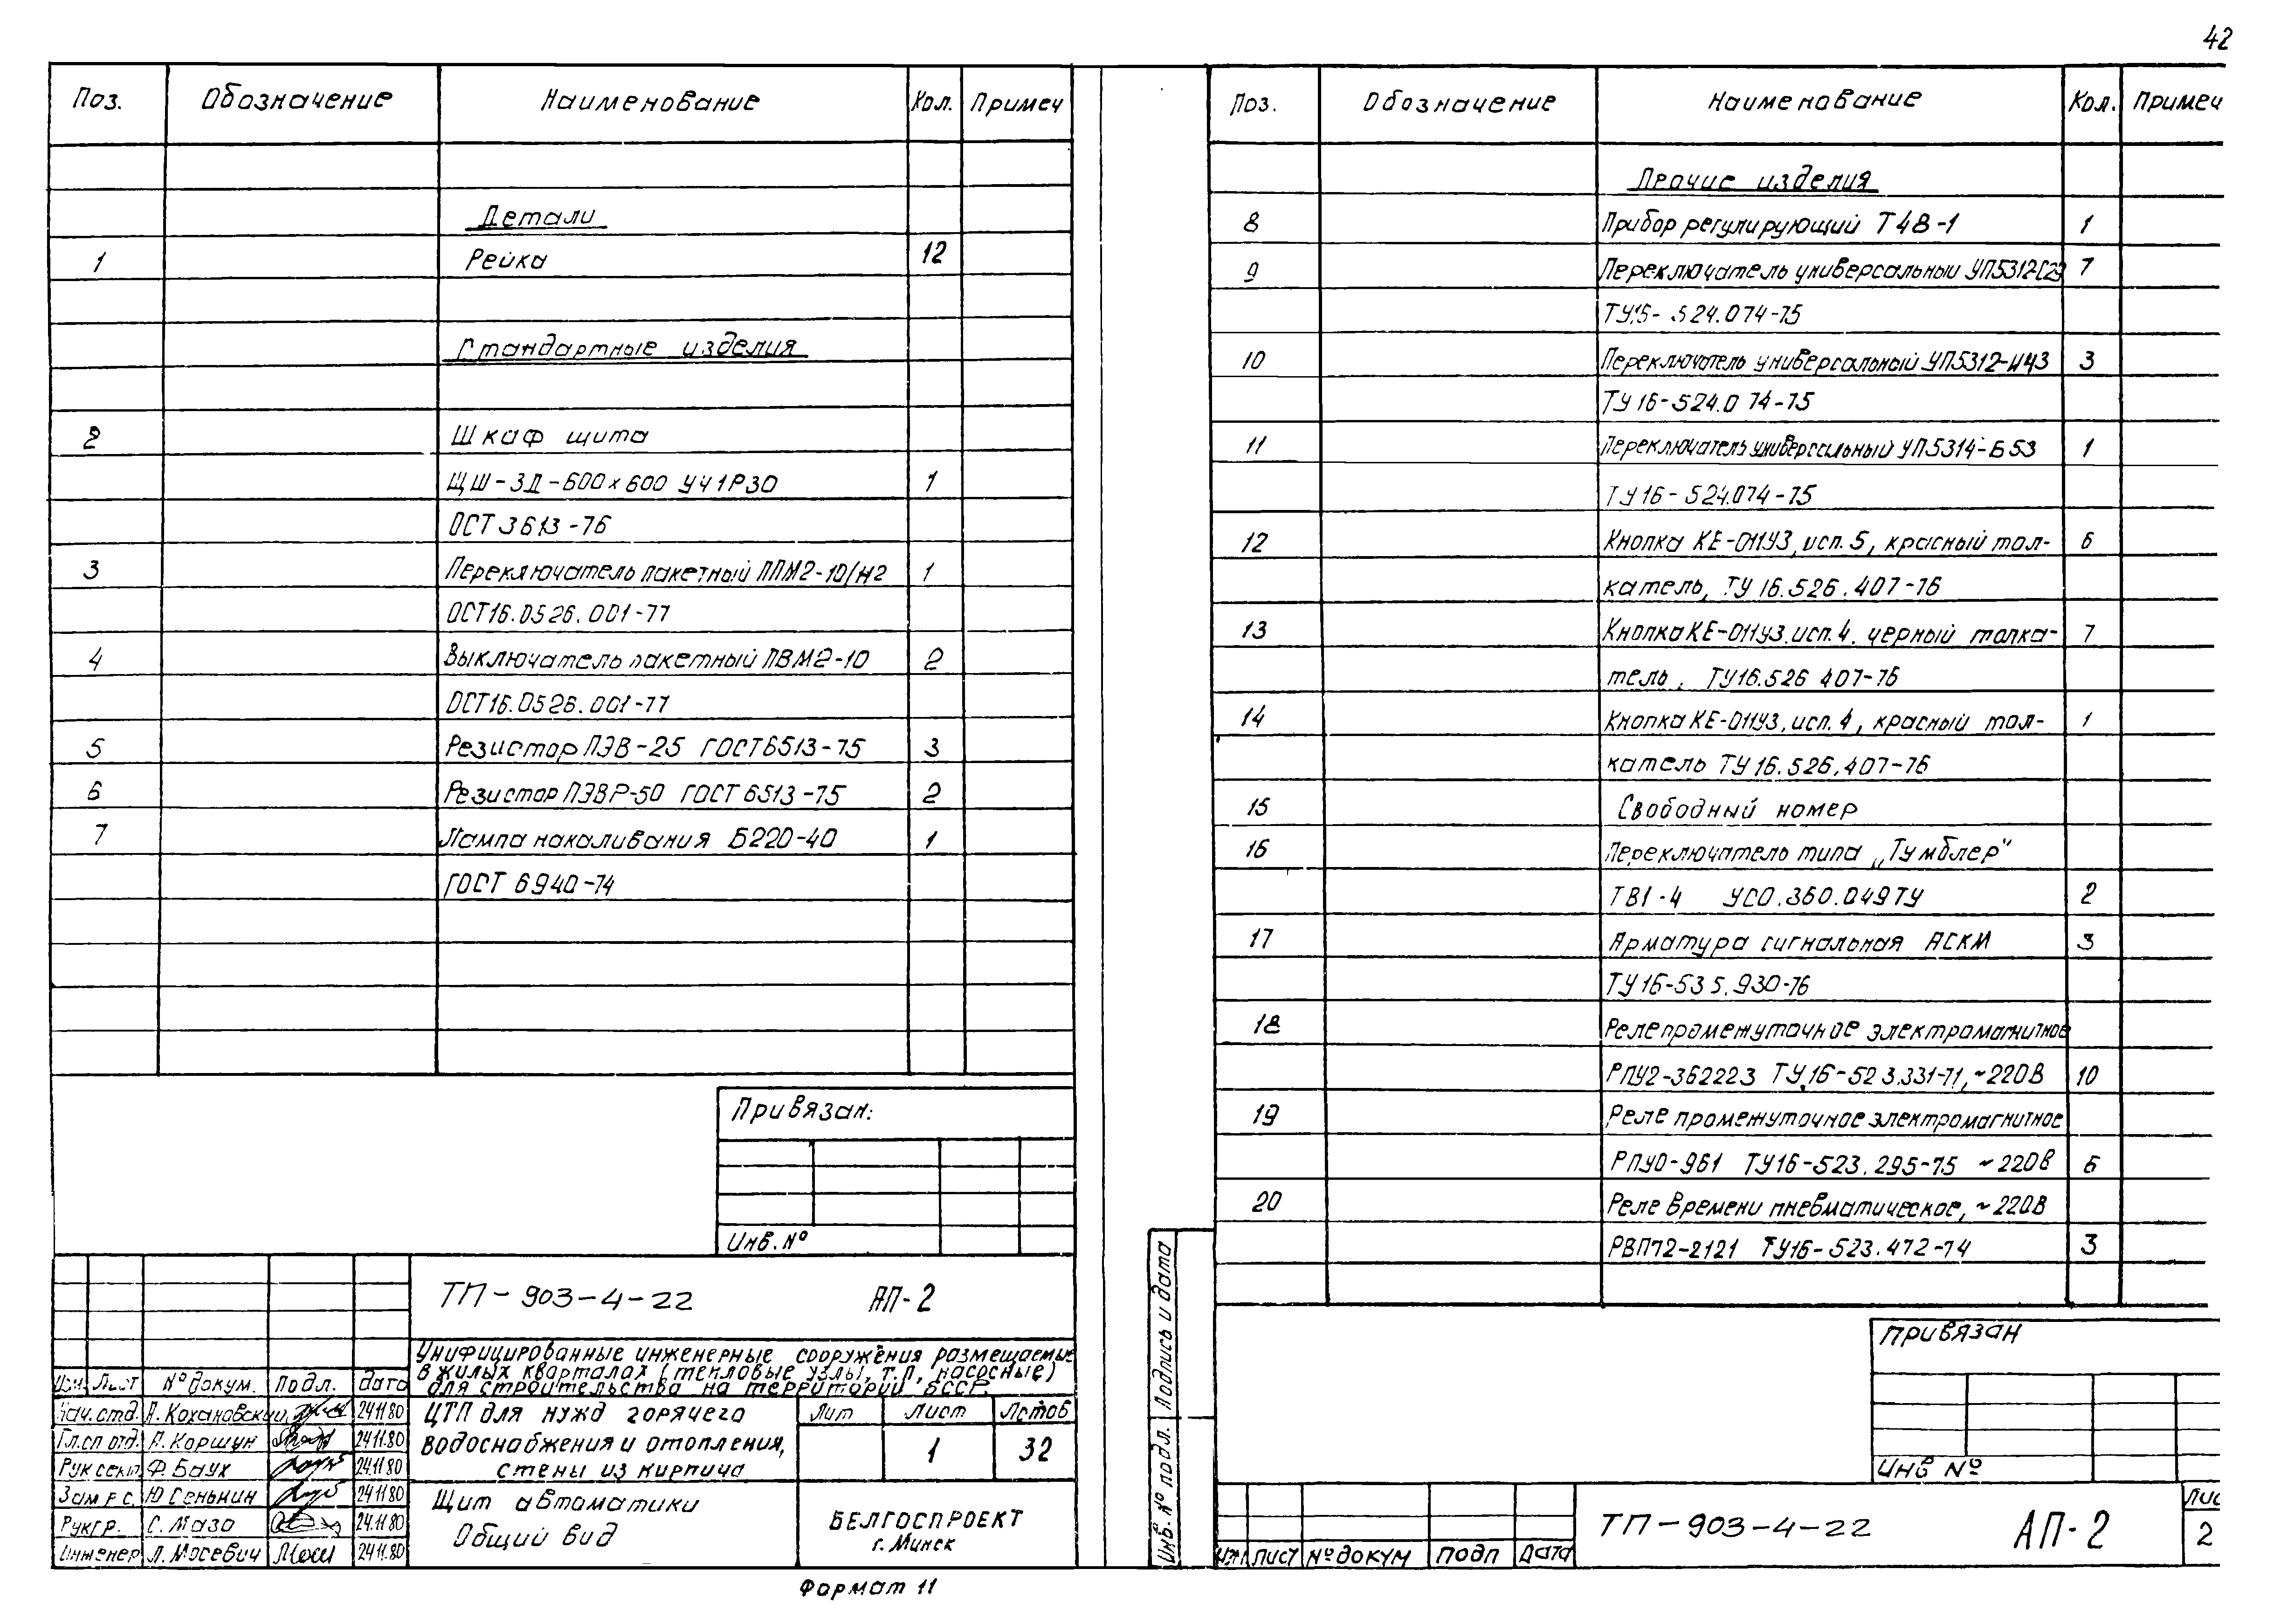 42
Поз. Обозначение Наименование Кол. Примеч
Детали
1 Рейка 12
Стандартные изделия
2 Шкаф щита
ЩШ-ЗД-600×600 УЧ1Р30 1
ОСТ 3613-76
3 Переключатель пакетный ППМ2-10/Н2 1
ОСТ16.0526.001-77
4 Выключатель пакетный ПВМ2-10 2
ОСТ16.0526.001-77
5 Резистор ПЭВ-25 ГОСТ6513-75 3
6 Резистор ПЭВР-50 ГОСТ 6513-75 2
7 Лампа накаливания Б220-40 1
ГОСТ 6940-74
Привязан:
Инв. №
ТП-903-4-22 АП-2
Унифицированные инженерные сооружения размещаемые
в жилых кварталах (тепловые узлы, т.п, насосные)
для строительства на территории БССР.
Изм. Лист № докум. Подп. Дата
Нач. отд. А. Кохановский 24.11.80
Гл.сп отд. А. Коршун 24.11.80
Рук сект. Ф. Баух 24.11.80
Зам р с. Ю Сенькин 24.11.80
Рук гр. С. Мазо 24.11.80
Инженер Л. Мосевич 24.11.80
ЦТП для нужд горячего
водоснабжения и отопления,
стены из кирпича
Лит Лист Листов
1 32
Щит автоматики
Общий вид
БЕЛГОСПРОЕКТ
г. Минск
Формат 11
Поз. Обозначение Наименование Кол. Примеч
Прочие изделия
8 Прибор регулирующий Т48-1 1
9 Переключатель универсальный УП5312-С29 7
ТУ16-524.074-75
10 Переключатель универсальный УП5312-И43 3
ТУ 16-524.074-75
11 Переключатель универсальный УП5314-Б53 1
ТУ 16-524.074-75
12 Кнопка КЕ-011У3, исп. 5, красный тол- 6
катель, ТУ 16.526.407-76
13 Кнопка КЕ-011У3. исп. 4. черный толка- 7
тель, ТУ16.526 407-76
14 Кнопка КЕ-011У3, исп. 4, красный тол- 1
катель ТУ 16.526.407-76
15 Свободный номер
16 Переключатель типа „Тумблер"
ТВ1-4 УСО.360.049ТУ 2
17 Арматура сигнальная АСКМ 3
ТУ16-535.930-76
18 Реле промежуточное электромагнитное
РПУ2-362223 ТУ16-523.331-71, ~220В 10
19 Реле промежуточное электромагнитное
РПУ0-961 ТУ16-523.295-75 ~220В 6
20 Реле времени пневматическое, ~220В
РВП72-2121 ТУ16-523.472-74 3
Привязан
Инв №
Инв. № подл. Подпись и дата
Изм Лист № докум Подп Дата
ТП-903-4-22 АП-2
Лис
2